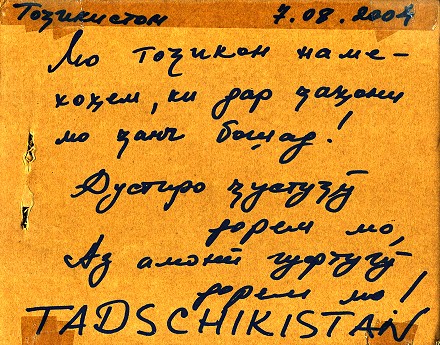 Тоҷикистон 7.08.2004
Мо тоҷикон наме-
хоҳем, ки дар ҷаҳони
мо ҷанг бошад!
Дустиро ҷустуҷӯ
дорем мо,
Аз амонӣ гуфтугӯ
дорем мо!
TADSCHIKISTAN